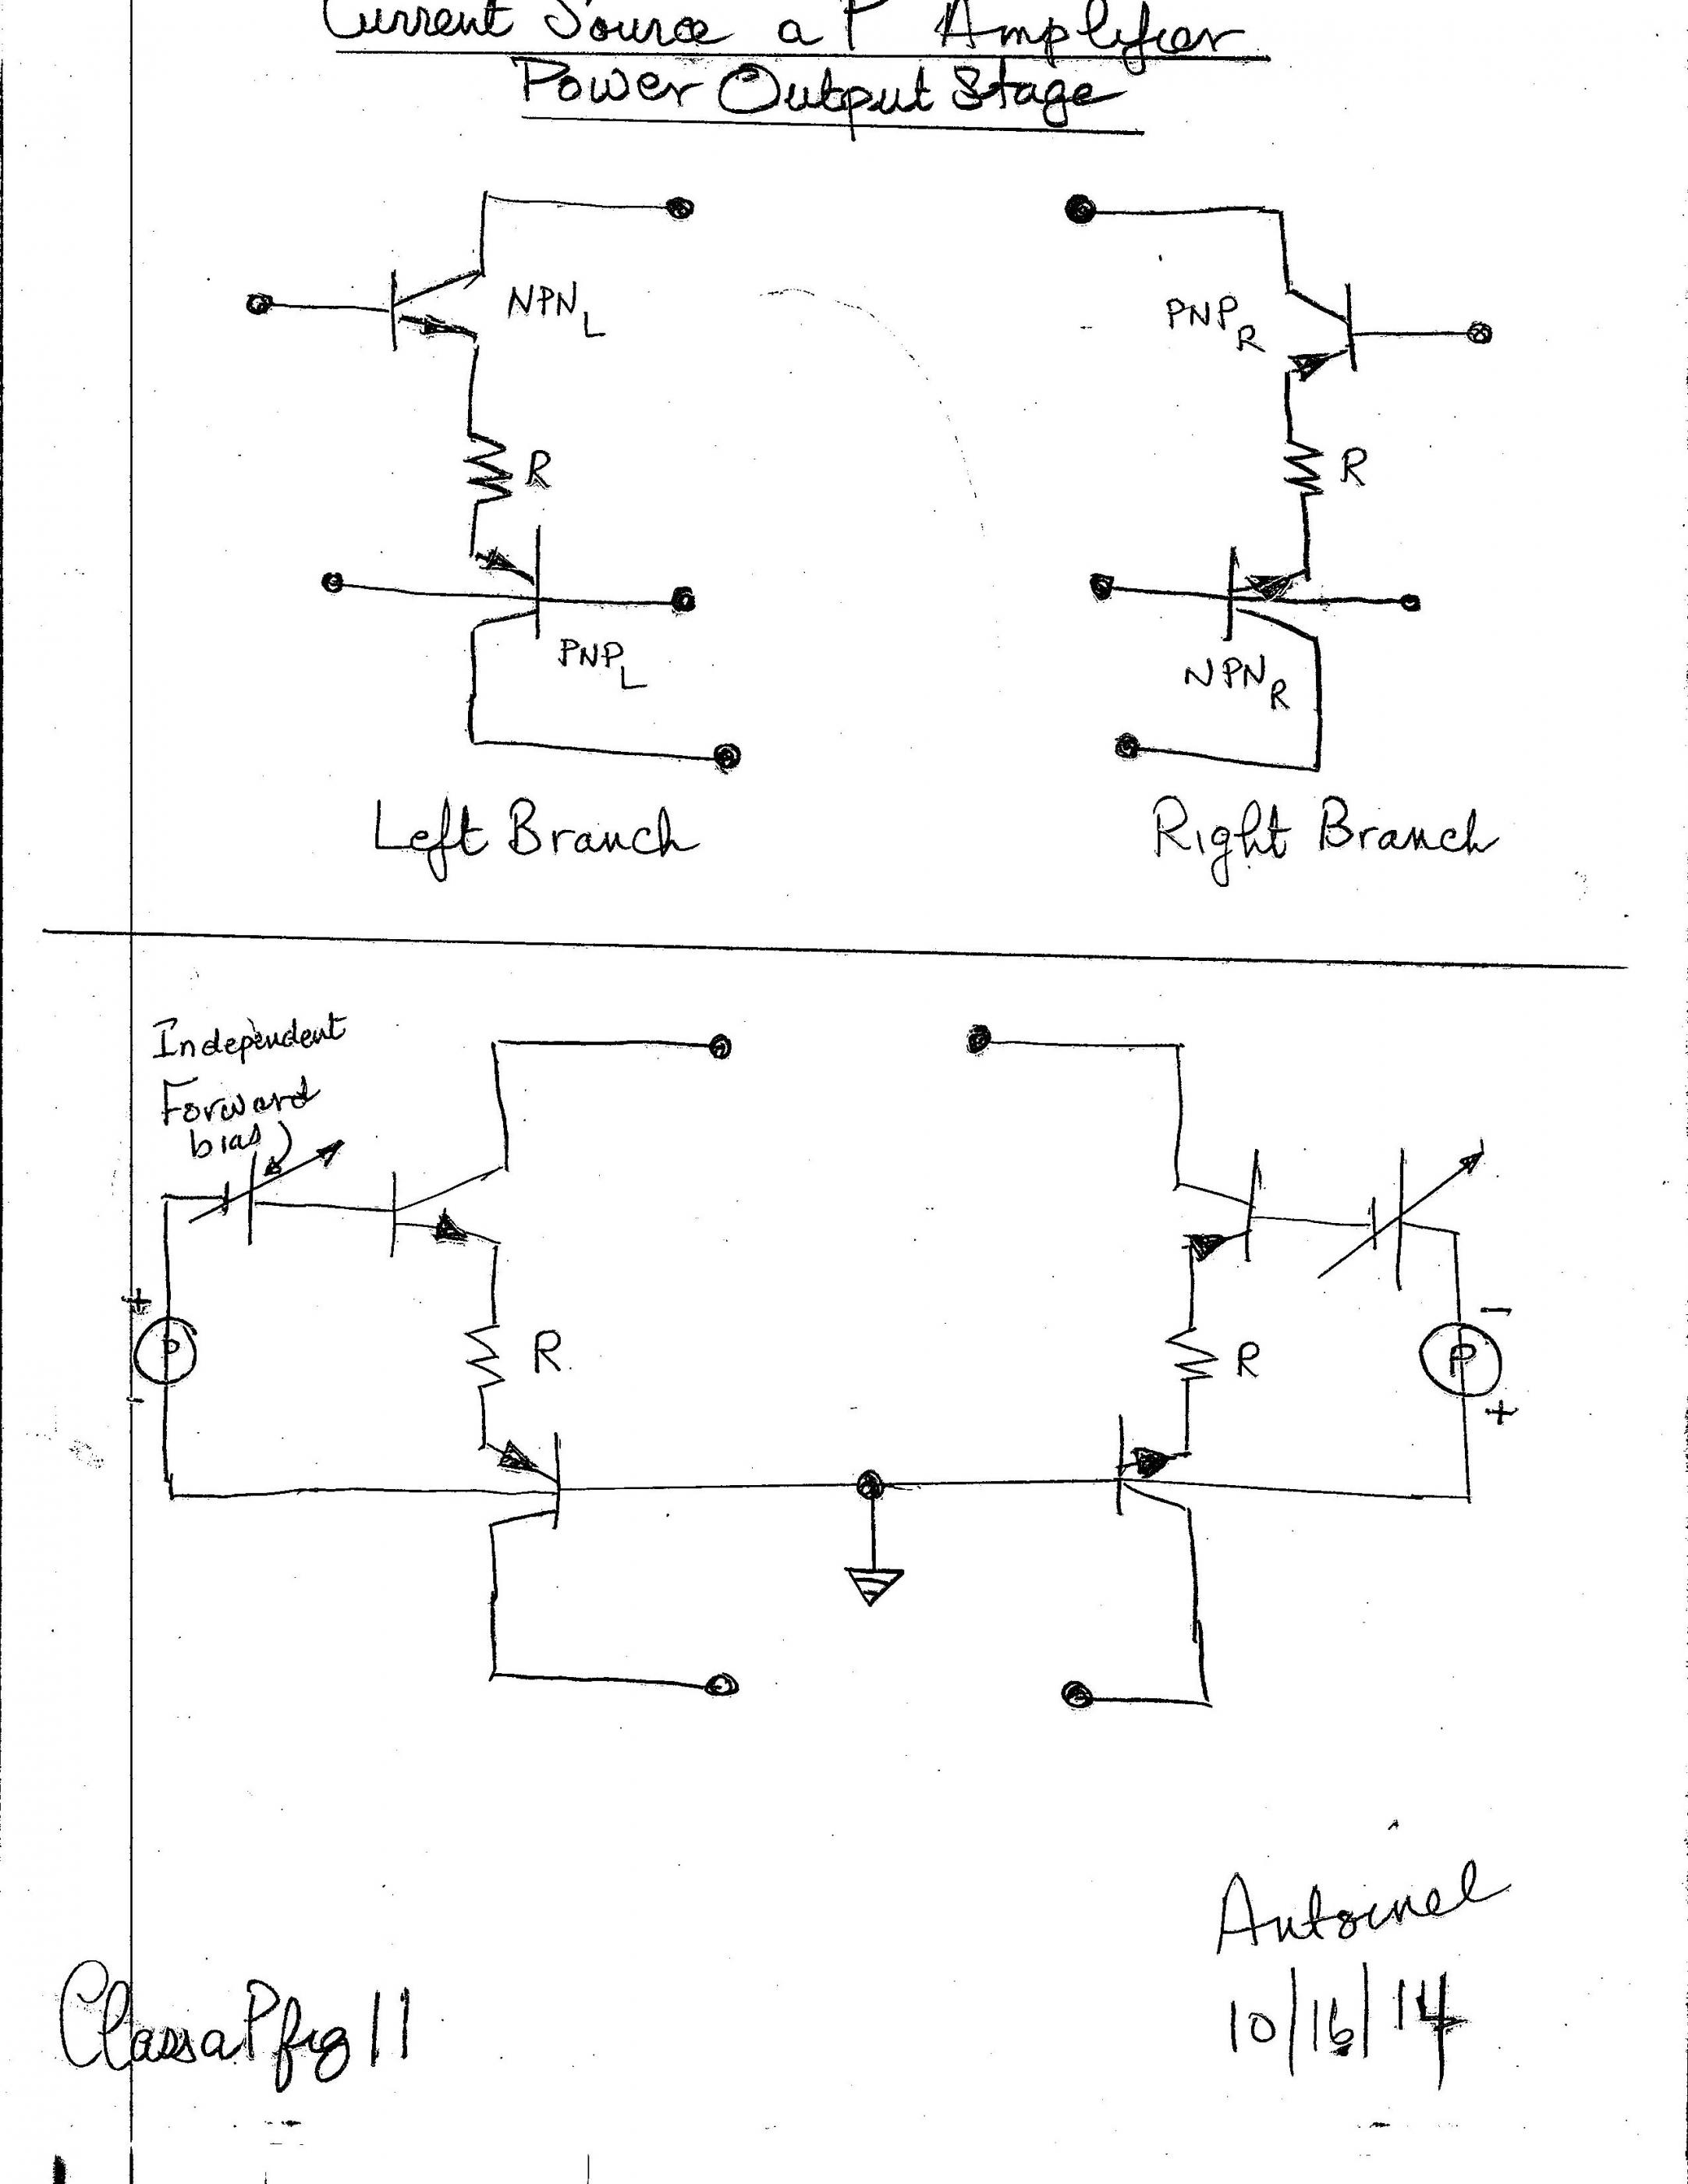 Current Source a P Amplifier
Power Output Stage
NPN L
PNP R
R
R
PNP L
NPN R
Left Branch
Right Branch
Independent
Forward
bias
+
P
-
R
R
-
P
+
Antoinel
10/16/14
ClassaPfig 11